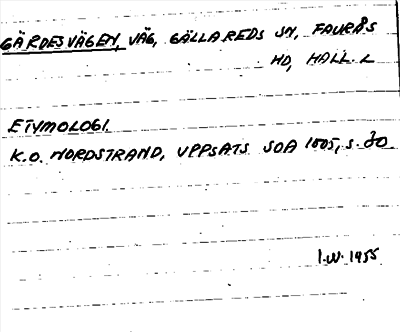 GÄRDESVÄGEN, VÄG, GÄLLAREDS SN, FAURÅS
HD, HALL. L
ETYMOLOGI.
K.O. NORDSTRAND, UPPSATS SOA 1005, S. 30
I.W. 1955